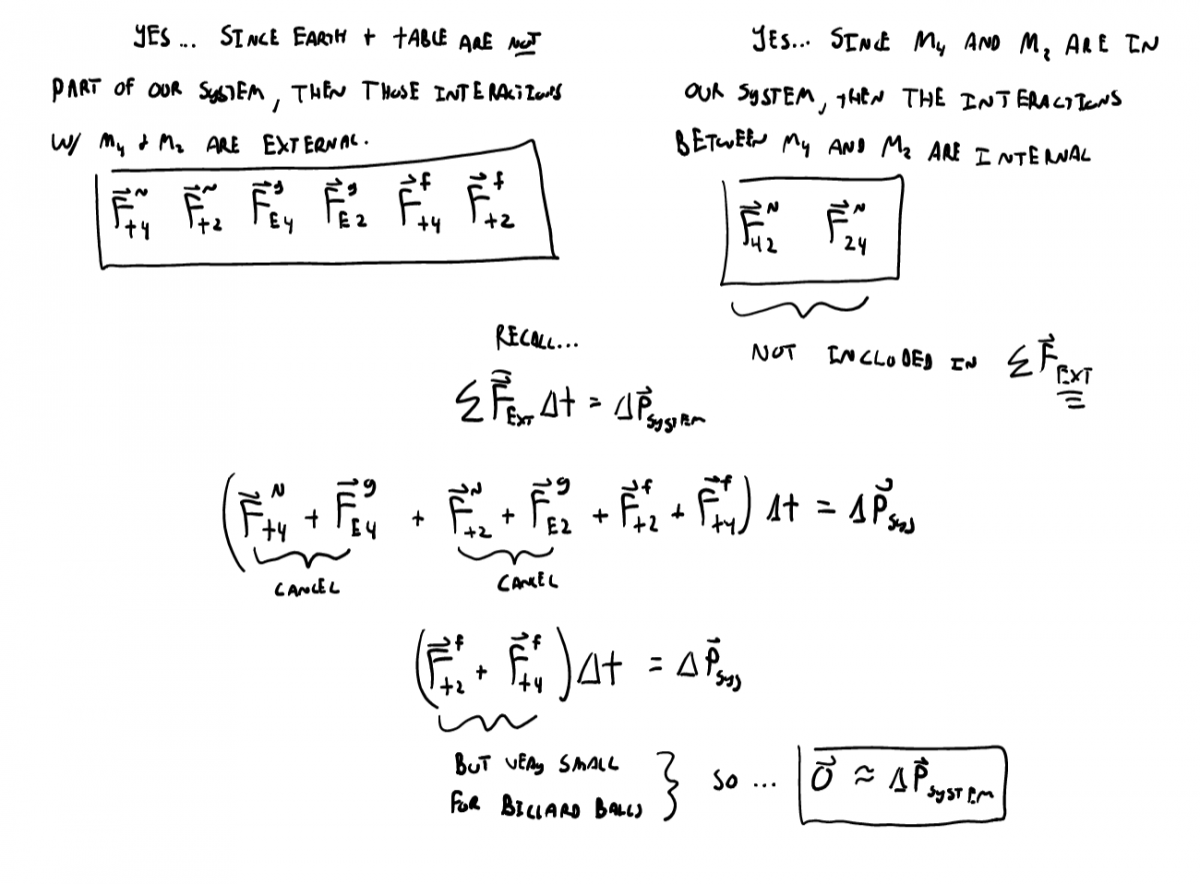 YES... SINCE EARTH + TABLE ARE NOT
PART OF OUR SYSTEM, THEN THOSE INTERACTIONS
W/ M₄ + M₂ ARE EXTERNAL.
F⃗ᴺₜ₄ F⃗ᴺₜ₂ F⃗ᵍE₄ F⃗ᵍE₂ F⃗ᶠₜ₄ F⃗ᶠₜ₂
YES... SINCE M₄ AND M₂ ARE IN
OUR SYSTEM, THEN THE INTERACTIONS
BETWEEN M₄ AND M₂ ARE INTERNAL
F⃗ᴺ₄₂ F⃗ᴺ₂₄
NOT INCLUDED IN ΣF⃗EXT
RECALL...
ΣF⃗EXT Δt = ΔP⃗SYSTEM
(F⃗ᴺₜ₄ + F⃗ᵍE₄ + F⃗ᴺₜ₂ + F⃗ᵍE₂ + F⃗ᶠₜ₂ + F⃗ᶠₜ₄) Δt = ΔP⃗sys
CANCEL CANCEL
(F⃗ᶠₜ₂ + F⃗ᶠₜ₄) Δt = ΔP⃗sys
BUT VERY SMALL
FOR BILLARD BALLS } SO ... 0⃗ ≈ ΔP⃗SYSTEM